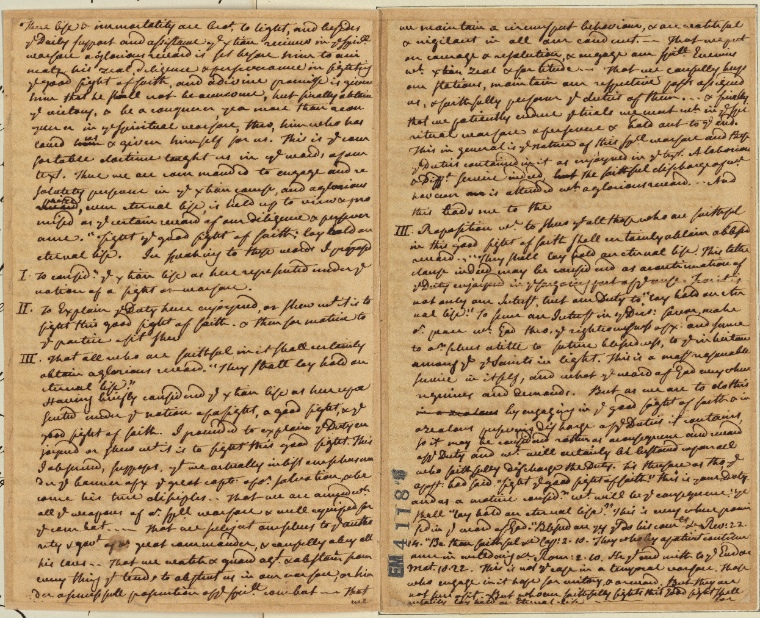 There life & immortality are bro't to light, and besides
ye Daily support and assistance ye Xtian receives in ye Spirl
warfare a glorious reward is set before him to ani
mate his zeal, diligence & perseverance in fighting
ye good fight of faith, and a divine promise is given
him that he shall not be overcome, but finally obtain
ye victory, & be a conqueror, yea more than a con
queror in ye Spiritual warfare, thro, him who has
loved us & given himself for us. This is ye com
fortable doctrine taught us in ye words of our
text. Thus we are commanded to engage and re
solutely persevere in ye Xtian cause, and a glorious
reward, even eternal life, is held up to view & pro
mised as ye certain reward of our diligence & persever
ance. "Fight ye good fight of faith: lay hold on
eternal life. In speaking to these words I propose
I. To consider ye Xtian life as here represented under ye
notion of a fight or warfare.
II. To Explain ye Duty here enjoyned, or shew wt it is to
fight this good fight of faith. & then for motive to
ye practice of it shew
III. That all who are faithful in it shall certainly
obtain a glorious reward. "They shall lay hold on
eternal life."
Having briefly considered ye Xtian life as here repre
sented under ye notion of a fight, a good fight, & ye
good fight of faith. I proceeded to explain ye Duty en
joyned or shew wt it is to fight this good fight. This
I observed, supposes, yt we actually inlist ourselves un
der ye banner of X ye great Captn of or salvation, & be
come his true disciples. -- That we are armed wt
all ye weapons of or spll warfare & well equipped for
ye combat -- That we subject ourselves to ye autho
rity & govt of or great commander, & carefully obey all
his laws -- That we watch & guard agt & abstain from
every thing yt tends to obstruct us in our warfare, or hin
der a successful prosecution of ye spirll combat -- That
we
we maintain a circumspect behaviour, & are watchful
& vigilant in all our conduct -- That we put
on courage & resolution, & engage our spll Enemies
wt Xtian zeal & fortitude -- That we carefully keep
our stations, maintain our respective posts assigned
us, & faithfully perform ye duties of them -- & finally
that we patiently endure ye trials we meet wt in ye spi
ritual warfare & persevere & hold out to ye end.
This in general is ye nature of this spll warfare and these
ye Duties contained in it as enjoyned in ye text. A laborious
& Difft service indeed, but the faithful discharge of wc
however is attended wt a glorious reward. -- And
this leads me to the
III. Proposition viz. to shew yt all those who are faithful
in this good fight of faith shall certainly obtain a blessed
reward. "They shall lay hold on eternal life. This latter
clause indeed may be considered as a continuation of
ye Duty enjoyned in ye foregoing part of ye verse. For it is
not only our Interest, but our Duty to "lay hold on eter
nal life." To secure an Interest in ye Divine favour, make
or peace wt God thro, ye righteousness of X and secure
to orselves a title to future blessedness, to ye inheritance
among ye Saints in light. This is a most reasonable
service in itself, and what ye word of God every where
requires and demands. But as we are to do this
by engaging in ye good fight of faith & in
a zealous persevering discharge of ye Duties it contains,
so it may be considered rather as a consequence and reward
of ye Duty and wt will certainly be bestowed upon all
who faithfully discharge the Duty. his therefore as tho ye
apost. had said "fight ye good fight of faith" this is your Duty
and as a motive consider wt will be ye consequence "ye
shall "lay hold on eternal life." This is every where promi
sed in ye word of God. "Blessed are yy yt do his comts & Rev: 22.
14. "Be thou faithful & Cap: 2. 10. They who by patient continu
ance in welldoing & Rom: 2.
Mat. 10. 22. This is not ye case in a temporal warfare. Those
who engage in it hope for victory, & a reward, But they are
not sure of it. But whoever faithfully fights this good fight shall
certainly lay hold on Eternal life
for
EM 4118